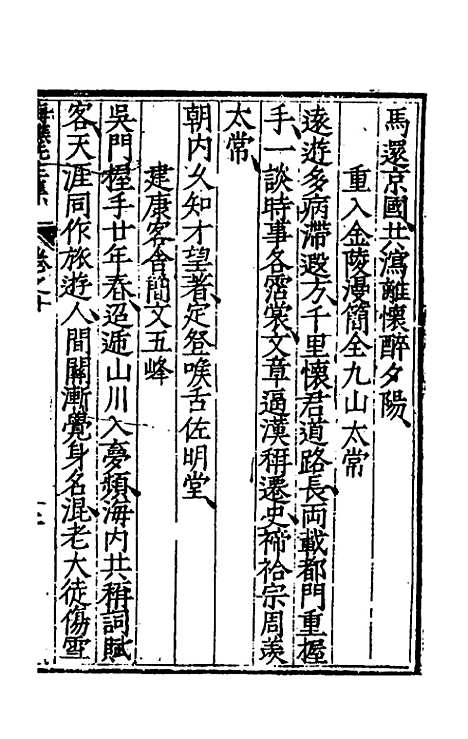 馬還京國共瀉離懷醉夕陽
重入金陵漫簡全九山太常
遠遊多病滯遐方千里懷君道路長両載都門重握
手一談時事各霑裳文章逼漢稱遷史禘祫宗周羡
太常
朝內久知才望著定登喉舌佐明堂
建康客舍簡文五峰
吳門握手廿年春迢遞山川入夢頻海內共稱詞賦
客天涯同作旅遊人間關漸覺身名混老大徒傷雪
卷之十